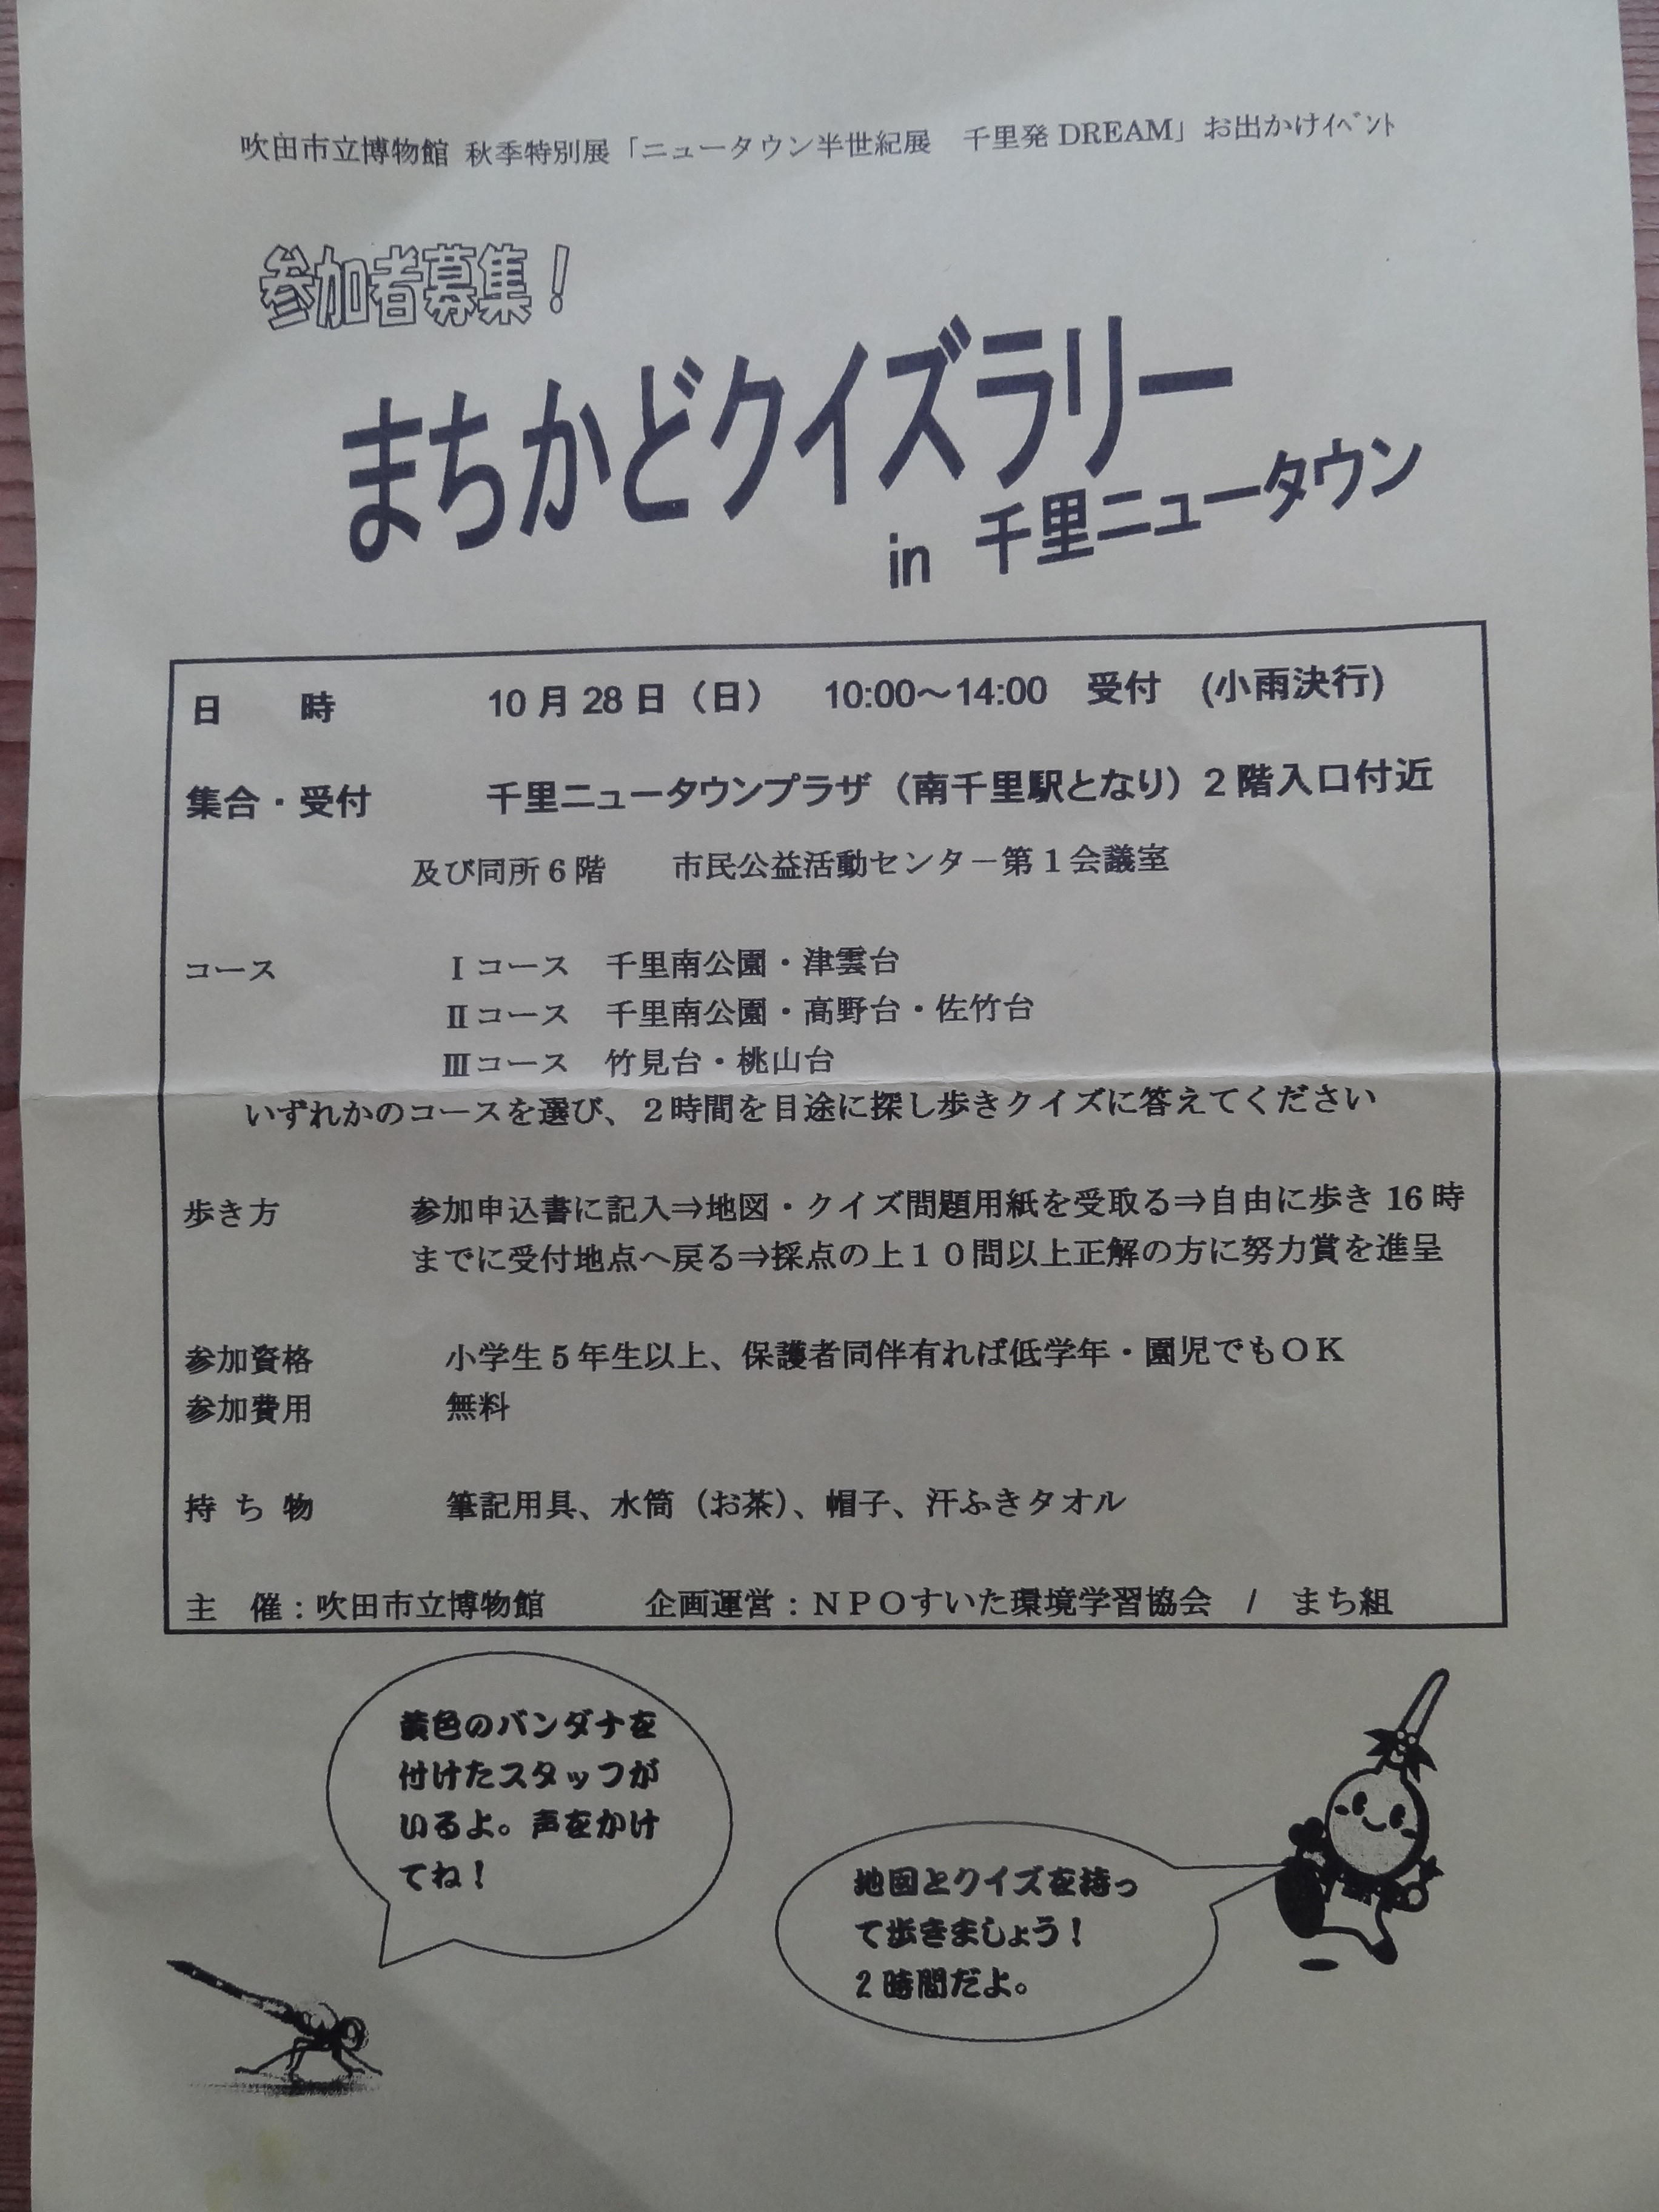 吹田市立博物館 秋季特別展「ニュータウン半世紀展　千里発 DREAM」お出かけｲﾍﾞﾝﾄ
参加者募集！
まちかどクイズラリー
in 千里ニュータウン
日　　時　　10 月 28 日（日）　10:00～14:00　受付　(小雨決行)
集合・受付　　千里ニュータウンプラザ（南千里駅となり）2 階入口付近
及び同所 6 階　　市民公益活動センタ－第 1 会議室
コース　　Ⅰコース　千里南公園・津雲台
Ⅱコース　千里南公園・高野台・佐竹台
Ⅲコース　竹見台・桃山台
いずれかのコースを選び、2 時間を目途に探し歩きクイズに答えてください
歩き方　　参加申込書に記入⇒地図・クイズ問題用紙を受取る⇒自由に歩き 16 時
までに受付地点へ戻る⇒採点の上１０問以上正解の方に努力賞を進呈
参加資格　　小学生 5 年生以上、保護者同伴有れば低学年・園児でもＯＫ
参加費用　　無料
持 ち 物　　筆記用具、水筒（お茶）、帽子、汗ふきタオル
主　催：吹田市立博物館　　企画運営：ＮＰＯすいた環境学習協会　/　まち組
黄色のバンダナを
付けたスタッフが
いるよ。声をかけ
てね！
地図とクイズを持っ
て歩きましょう！
2 時間だよ。